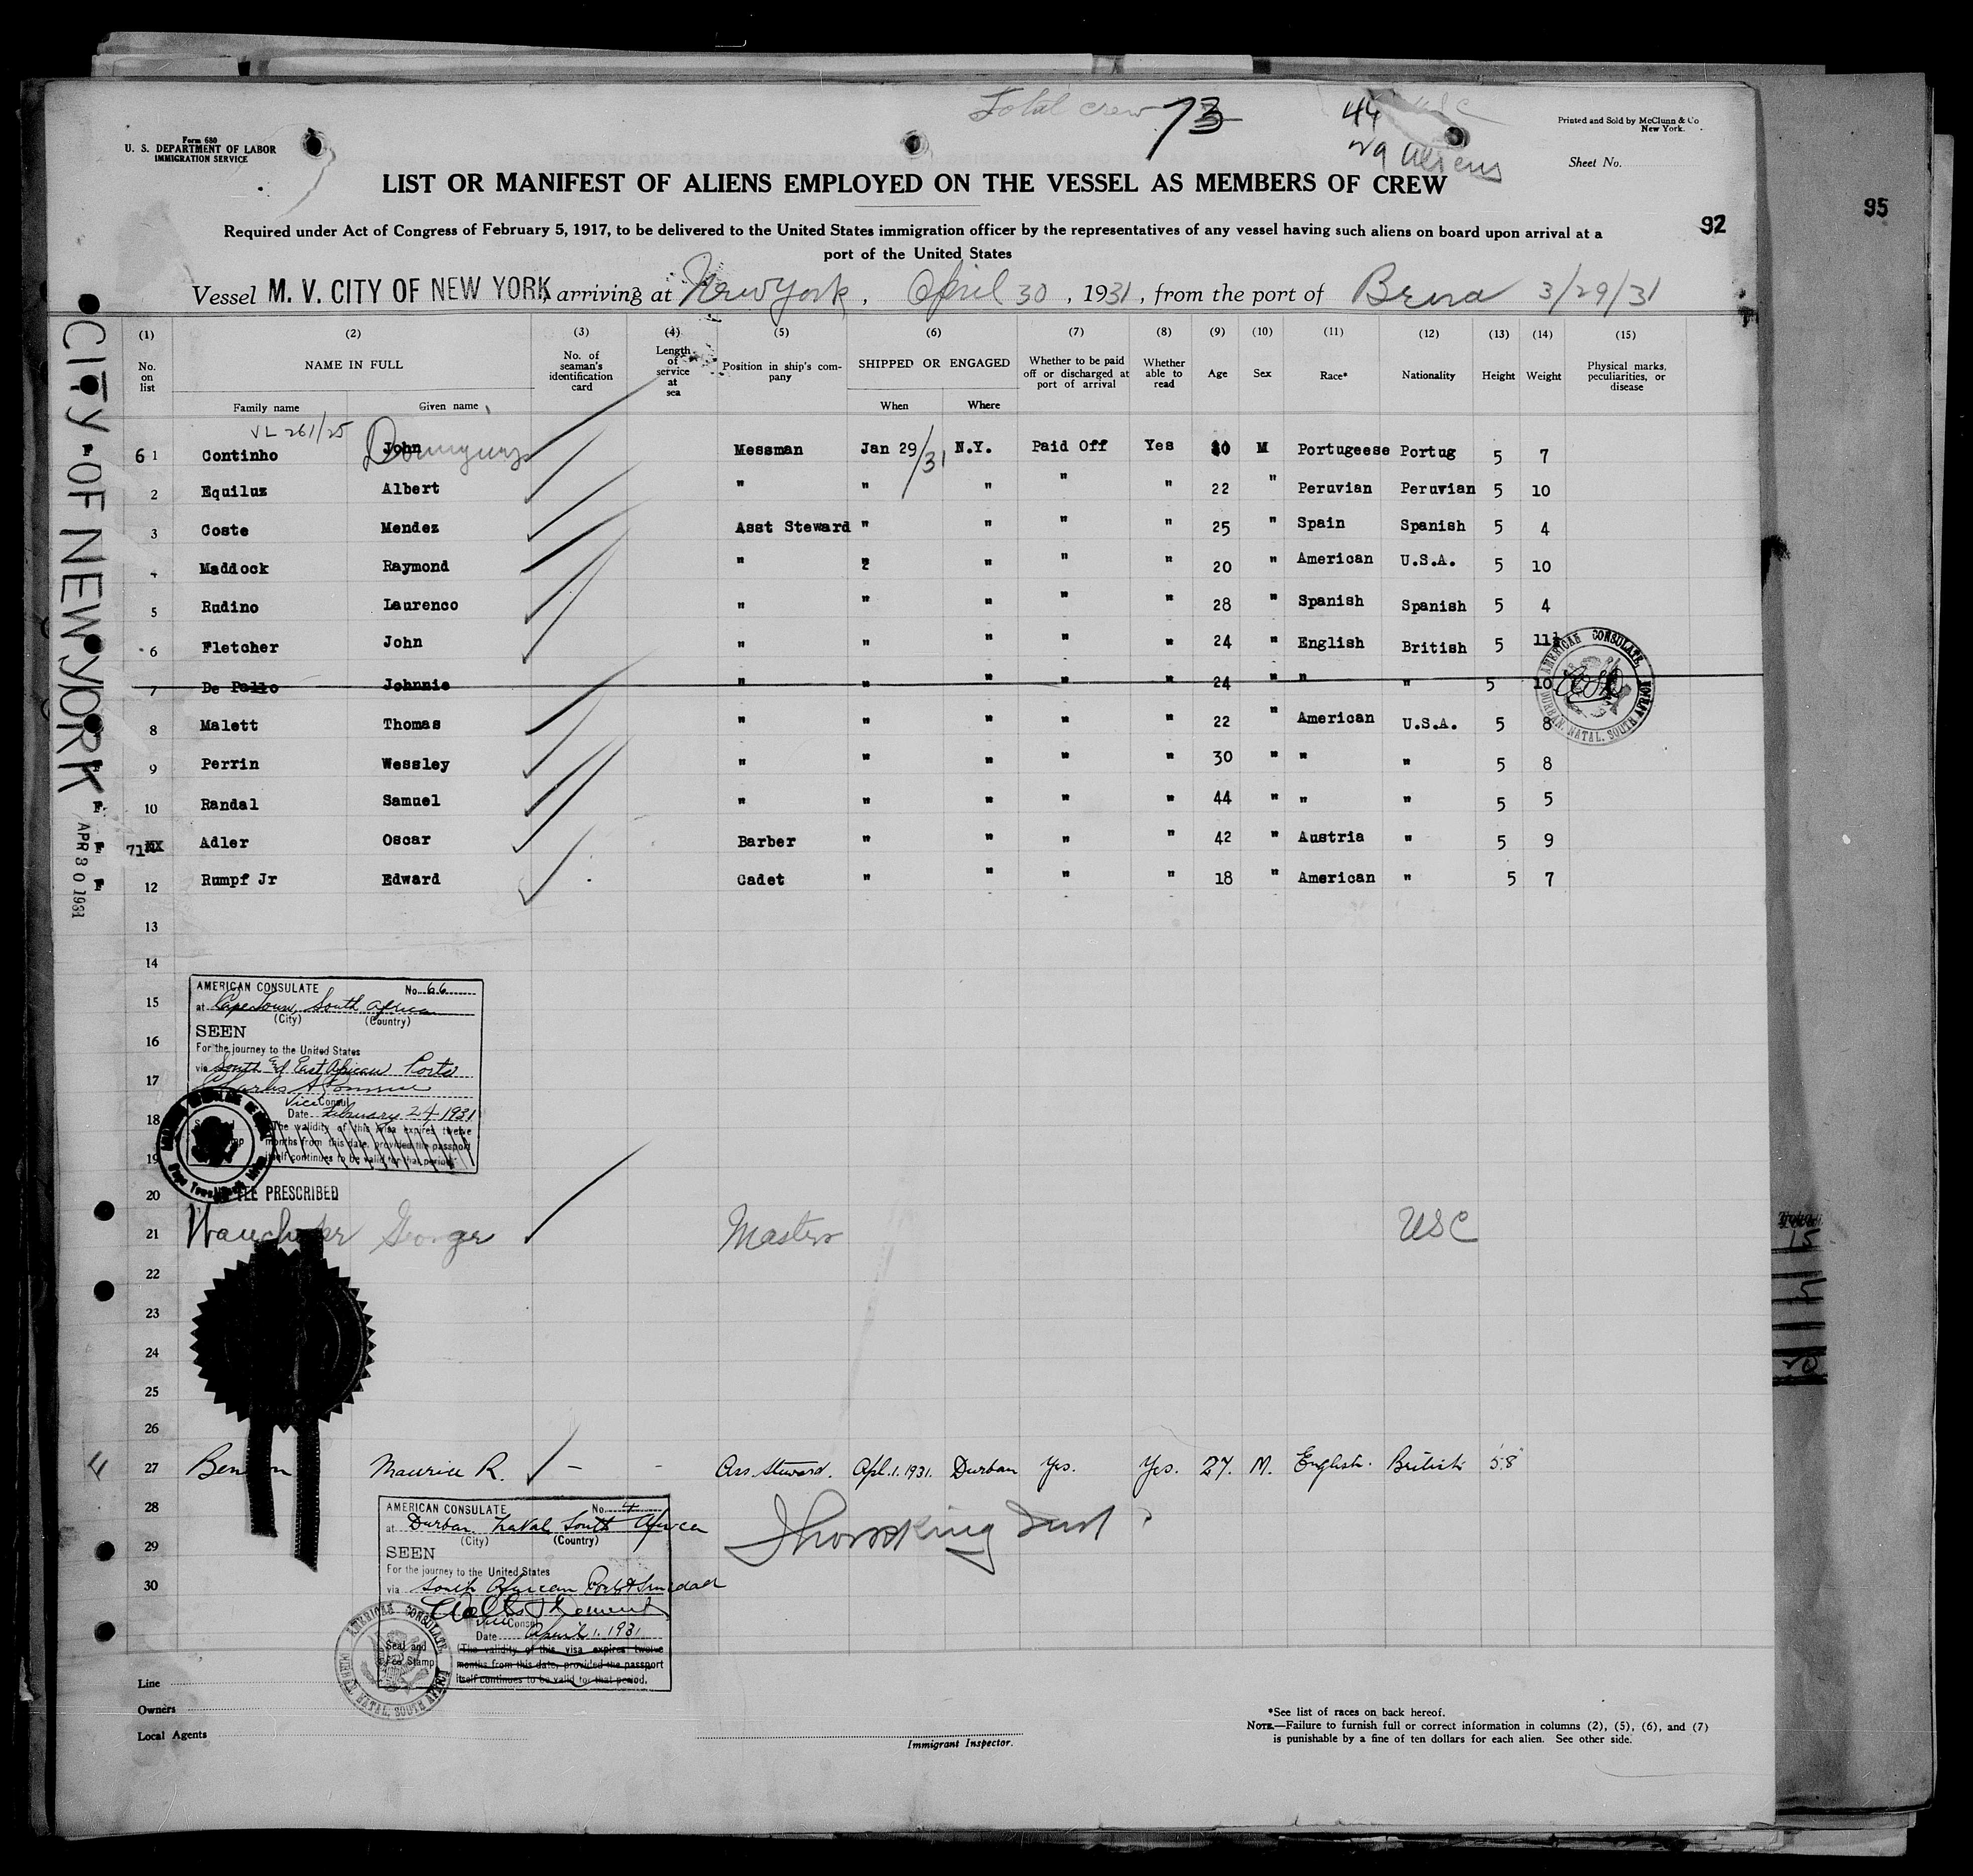 Total crew 73
44 USC
29 Aliens
Form 680
U. S. DEPARTMENT OF LABOR
IMMIGRATION SERVICE
Printed and Sold by McClunn & Co
New York.
Sheet No.
LIST OR MANIFEST OF ALIENS EMPLOYED ON THE VESSEL AS MEMBERS OF CREW
92
95
Required under Act of Congress of February 5, 1917, to be delivered to the United States immigration officer by the representatives of any vessel having such aliens on board upon arrival at a
port of the United States
Vessel M. V. CITY OF NEW YORK, arriving at New York, April 30, 1931, from the port of Beira 3/29/31
(1) (2) (3) (4) (5) (6) (7) (8) (9) (10) (11) (12) (13) (14) (15)
No. on list
NAME IN FULL
Family name Given name
No. of seaman's identification card
Length of service at sea
Position in ship's company
SHIPPED OR ENGAGED
When Where
Whether to be paid off or discharged at port of arrival
Whether able to read
Age
Sex
Race*
Nationality
Height
Weight
Physical marks, peculiarities, or disease
VL 261/25
61 Continho John Dominguez Messman Jan 29/31 N.Y. Paid Off Yes 30 M Portugeese Portug 5 7
2 Equiluz Albert " " " " " 22 " Peruvian Peruvian 5 10
3 Coste Mendez Asst Steward " " " " 25 " Spain Spanish 5 4
4 Maddock Raymond " " " " " 20 " American U.S.A. 5 10
5 Rudino Laurenco " " " " " 28 " Spanish Spanish 5 4
6 Fletcher John " " " " " 24 " English British 5 11½
7 De Pallo Johnnie " " " " " 24 " " " 5 10
8 Malett Thomas " " " " " 22 " American U.S.A. 5 8
9 Perrin Wessley " " " " " 30 " " " 5 8
F 10 Randal Samuel " " " " " 44 " " " 5 5
F 71 XX Adler Oscar Barber " " " " 42 " Austria " 5 9
F 12 Rumpf Jr Edward Cadet " " " " 18 " American " 5 7
AMERICAN CONSULATE
DURBAN, NATAL, SOUTH AFRICA
CITY OF NEW YORK
APR 30 1931
13
14
15
16
17
18
19
20
AMERICAN CONSULATE No. 66
at Cape Town, South Africa
(City) (Country)
SEEN
For the journey to the United States
via South & East African Ports
Charles
Vice Consul
Date February 24 1931
The validity of this visa expires twelve
months from this date, provided the passport
itself continues to be valid for that period.
FEE PRESCRIBED
21 George Master USC
22
23
24
25
26
F 27 Maurice R. - - Ass. Steward. Apl. 1. 1931. Durban Yes. Yes. 27. M. English. British 5.8
28
29
30
AMERICAN CONSULATE No. 4
at Durban Natal South Africa
(City) (Country)
SEEN
For the journey to the United States
via South African Ports & Trinidad
Vice Consul
Date April 1. 1931
(The validity of this visa expires twelve
months from this date, provided the passport
itself continues to be valid for that period.
Seal and
Fee Stamp
AMERICAN CONSULATE
DURBAN, NATAL, SOUTH AFRICA
Line
Owners
Local Agents
Immigrant Inspector.
*See list of races on back hereof.
NOTE.—Failure to furnish full or correct information in columns (2), (5), (6), and (7)
is punishable by a fine of ten dollars for each alien. See other side.
15
5
20